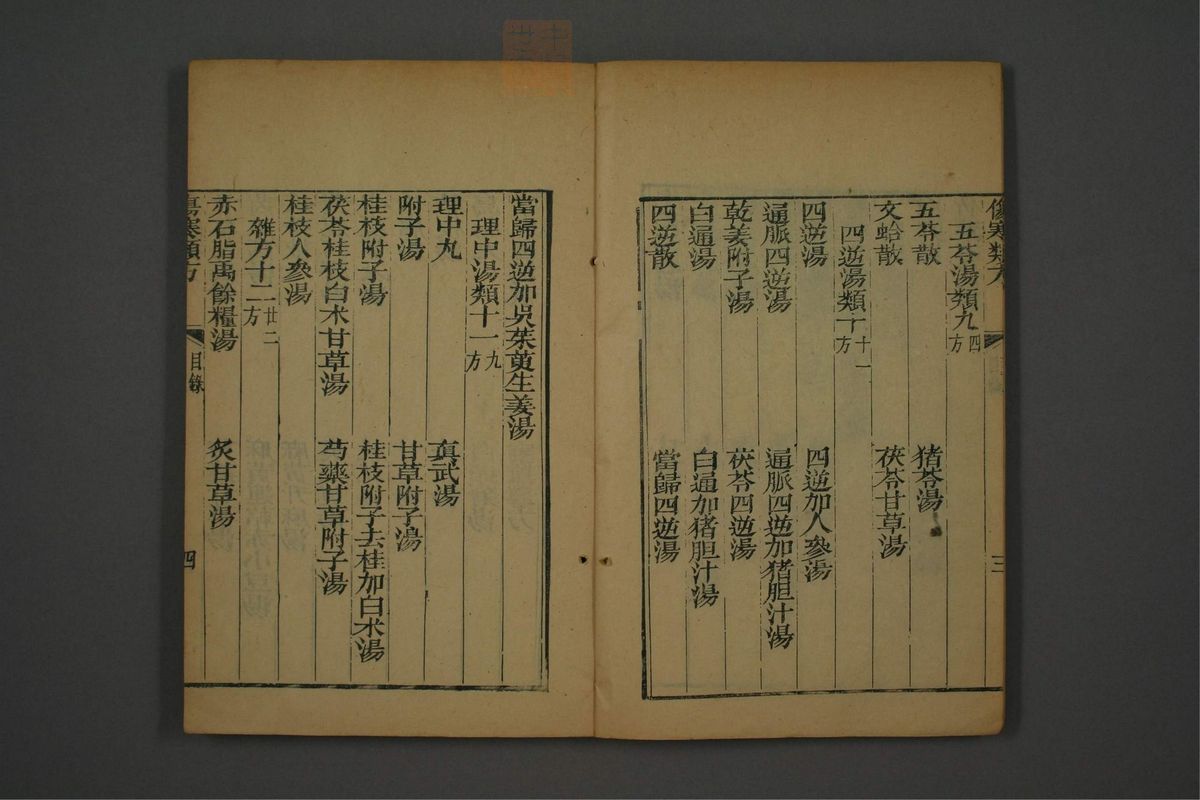 傷寒類方
三
五苓湯類九 四方
五苓散 猪苓湯
文蛤散 茯苓甘草湯
四逆湯類十 十一方
四逆湯 四逆加人參湯
通脈四逆湯 通脈四逆加猪胆汁湯
乾姜附子湯 茯苓四逆湯
白通湯 白通加猪胆汁湯
四逆散 當歸四逆湯
當歸四逆加吳茱萸生姜湯
理中湯類十一 九方
理中丸 真武湯
附子湯 甘草附子湯
桂枝附子湯 桂枝附子去桂加白术湯
茯苓桂枝白术甘草湯 芍藥甘草附子湯
桂枝人參湯
雜方十二 廿二方
赤石脂禹餘糧湯 炙甘草湯
傷寒類方 目錄 四